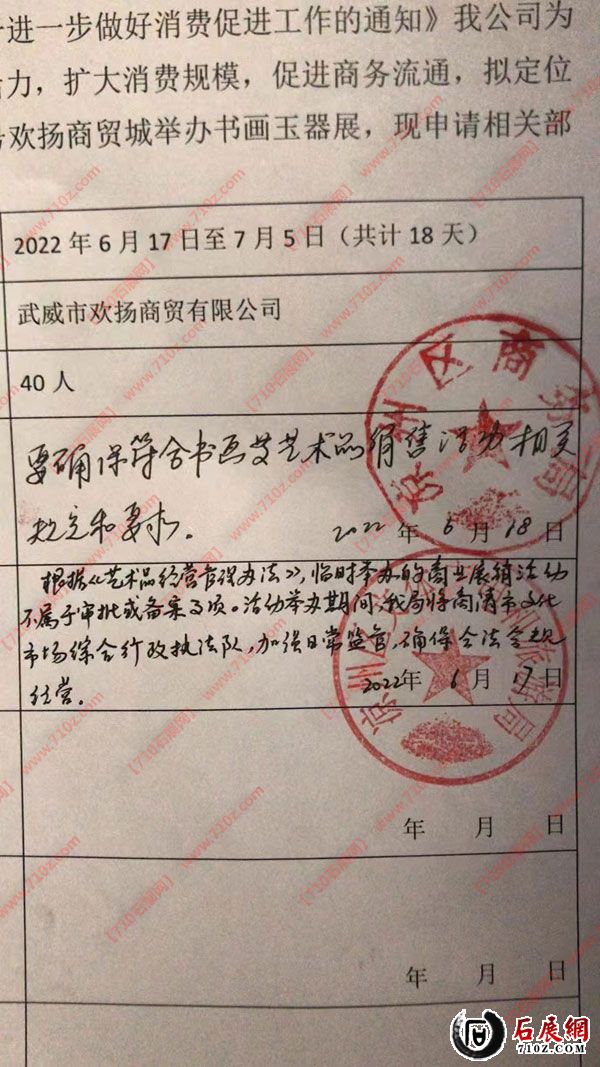 进一步做好消费促进工作的通知》我公司为
力，扩大消费规模，促进商务流通，拟定位
欢扬商贸城举办书画玉器展，现申请相关部
2022 年 6 月 17 日至 7 月 5 日（共计 18 天）
武威市欢扬商贸有限公司
40 人
要确保符合书画及艺术品销售活动相关
规定和要求。
2022 年 6 月 18 日
凉州区商务局
根据《艺术品经营管理办法》，临时举办的商业展销活动
不属于审批或备案事项。活动举办期间，我局将商请市文化
市场综合行政执法队，加强日常监管，确保合法合规
经营。
2022 年 6 月 17 日
年 月 日
年 月 日
石展網
710Z.COM
【710石展网】
www.710z.com